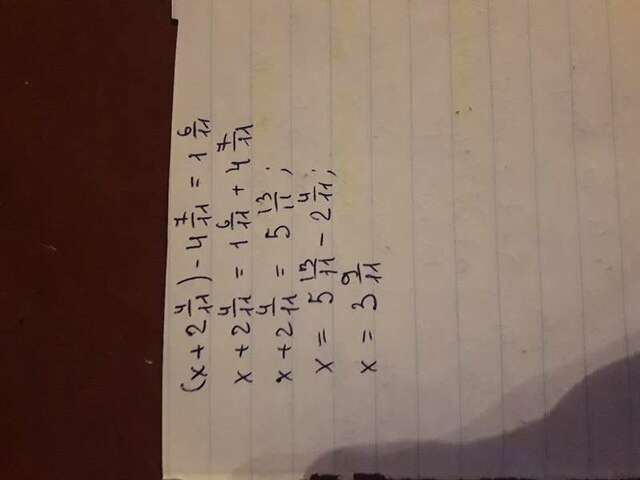 (x + 2 4/11) - 4 7/11 = 1 6/11
x + 2 4/11 = 1 6/11 + 4 7/11
x + 2 4/11 = 5 13/11 ;
x = 5 13/11 - 2 4/11 ;
x = 3 9/11